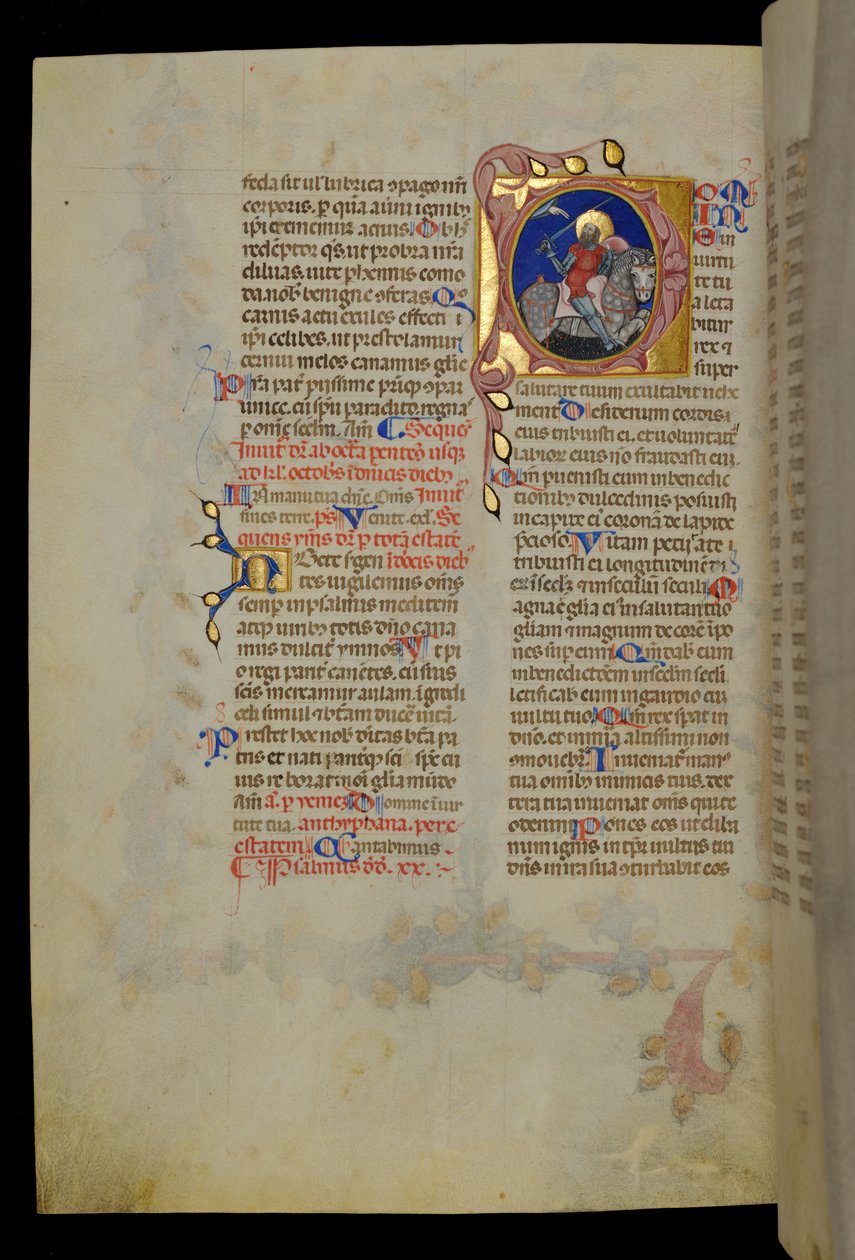 fecla sit ul' lubrica 9pago nr̄i
corporis. p̱ quā auᵉni ignibꝰ
ip̄i crememur acrius. Ob h
redēptor q̄s. ut probra nr̄a
diluas. uite ꝑhennis como
da. nob̄ benigne 9feras. Qͦ
carnis actu exules effecti i
ip̄i celibes. ut prestolamur
cernui melos canamus glīe
Pr̄a pat̄ pijssime pr̄iq̄ 9par
unice. cū sp̄u paraclito. regnaˢ
ꝑ om̄e sec̄lm. Am̄ Seque̅s
Inuit̄ dr̄ ab octa̅ pentec̄ usq̢
ad kl. octob̄s i̅ d̄nicis diebꝰ
In manu tua dn̄e. Om̄s Inuit̄
fines terre. ps̄ Venite. ecl. Se
quens ym̄s dr̄ ꝑ tota̅ estate̅
Nocte s̄gen i̅ do̅icis diebꝰ
tes uigilemus om̄s
semꝑ in psalmis meditem̄
atq̢ uiribꝰ totis dn̄o cana
mus dulcit̄ ymnos. Ut pi
o regi parit̄ cane̅tes. cū suis
sc̄is mereamur aulam. i̅gredi
celi simul ⁊ b̄tam duce̅ uita̅.
Prestet hoc nob̄ dītas b̄ta pa
tris et nati parit̄q̢ sc̄i sp̄c cu
ius reborat̄ i̅ om̄i glīa mu̅do
Am̄ a̅. ꝑ yeme̅ Domine i̅ uir
tute tua. anthyphana. per e
estatem. Cantabimus
Psalmus dd̄. xx.
DOMINE in
uirtu
te tu
a leta
bitur
rex ⁊
super
salutare tuum exultabit uehe
ment̄ Desiderium cordis
eius tribuisti ei. et uoluntate̅
labior̄ eius no̅ fraudasti eu̅.
Qm̄ preuenisti eum in benedic
tionibꝰ dulcedinis posuisti
in capite ei coronā de lapide
p̄cioso Vitam petijt a te
tribuisti ei longitudine̅ di
er̄ i̅ sec̄lꝫ ⁊ in seculū seculi
Magna ē glīa ei in salutari tuo
gliam ⁊ magnum decore̅ i̅po
nes suꝑ eum Qm̄ dab̄ eum
in benedicto̅em in seclm secli
letificab̄ eum in gaudio cu̅
uultu tuo Qm̄ rex sperat in
dn̄o. et in mīa altissimi non
9mouebit̄ Inueniat̄ manꝰ
tua omībꝰ inimicis tuis. dex
tera tua inueniat om̄s qui te
oderunt Pones eos ut cliba
num ignis in tp̄r uultus tui
dn̄s in ira sua 9turbabit eos